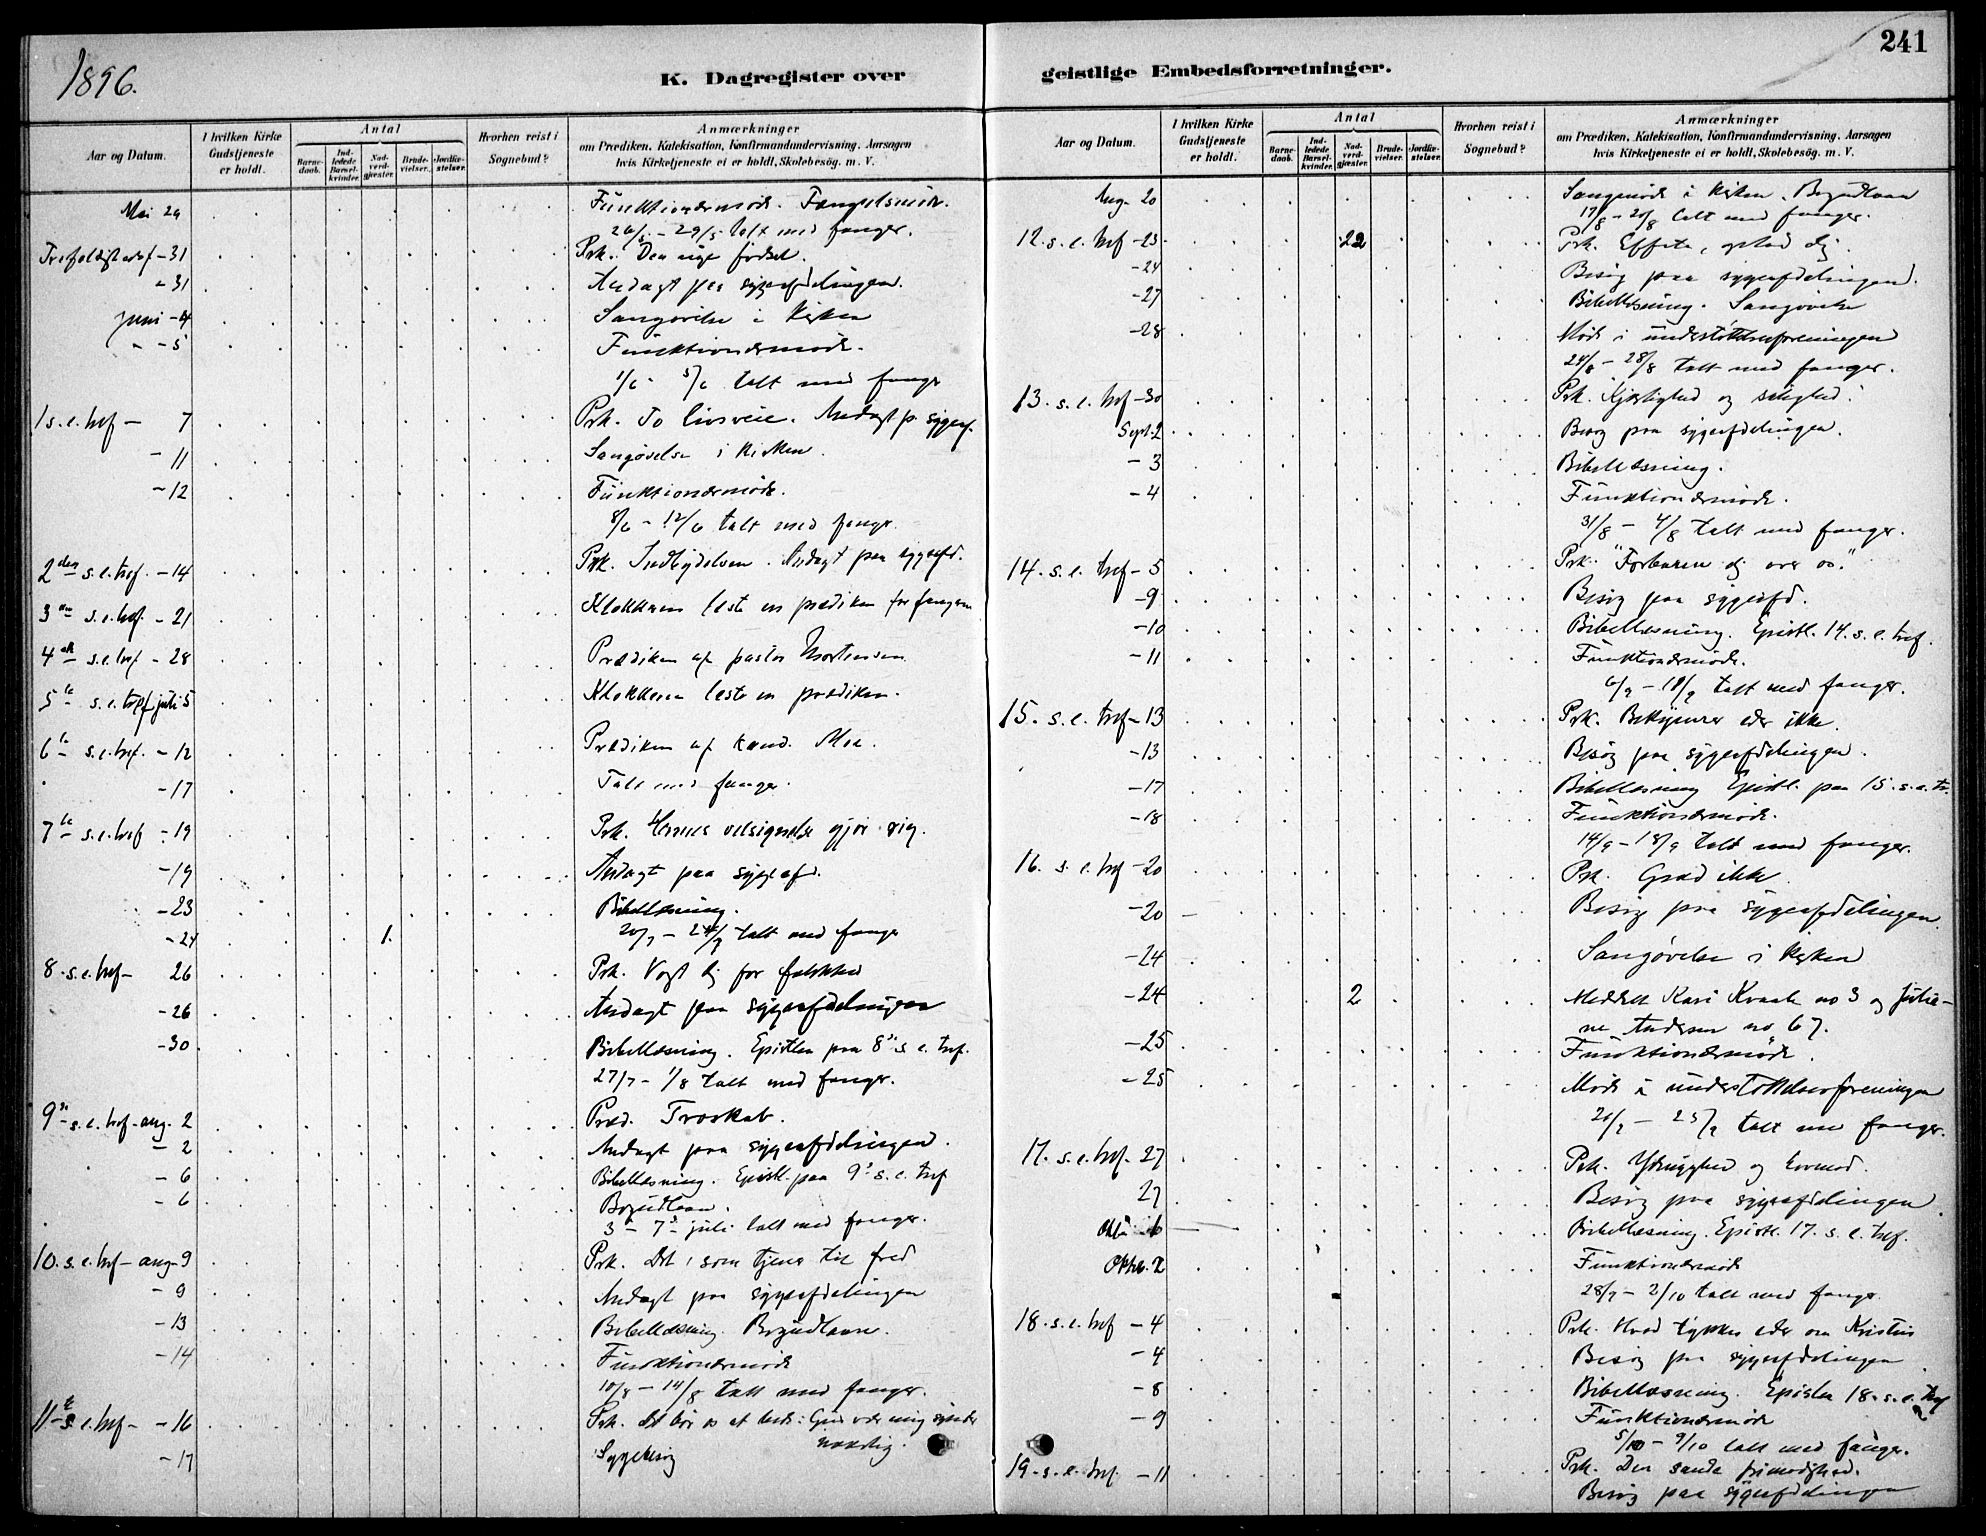 1896.
K. Dagregister over
Aar og Datum.
I hvilken Kirke Gudstjeneste er holdt.
Antal
Barnedaab.
Indledede Barselkvinder.
Nadverdgjæster.
Brudevielser.
Jordfæstelser.
Hvorhen reist i Sognebud?
Anmærkninger
om Prædiken, Katekisation, Konfirmandundervisning, Aarsagen
hvis Kirketjeneste ei er holdt, Skolebesög. m. V.
Mai 29 Funktionærmöde.
26/5 - 29/5 talt med fanger.
Trefoldighedsf - 31 Prk. Den nye födsel.
- 31 Andagt paa sygeafdelingen.
Juni - 4 Sangövelse i kirken
- - 5 Funktionærmöde.
1/6 - 5/6 talt med fanger
1 s. e. tref - 7 Prk. To livsveie. Andagt p. sygeaf.
- 11 Sangövelse i kirken.
- 12 Funktionærmöde.
8/6 - 12/6 talt med fanger.
2den s. e. tref. - 14 Prk. Indbydelsen. Andagt paa sygeafd.
3die s. e. tref. - 21 Klokkeren læste en prædiken for fangerne
4de s. e. tref - 28 Prædiken af pastor Mortensen
5te s. e. tref juli 5 Klokkeren læste en prædiken.
6te s. e. tref. - 12 Prædiken af kand. Moe.
- 17 Talt med fanger.
7de s. e. tref - 19 Prk. Herrens velsignelse gjör rig.
- 19 Andagt paa sygeafd.
- 23 Bibellæsning.
- 24 1. 20/7 - 24/7 talt med fanger
8. s. e. tref - 26 Prk. Vogt dig for falskhed
- 26 Andagt paa sygeafdelingen
- 30 Bibellæsning. Epistlen paa 8de s. e. tref.
27/7 - 1/8 talt med fanger.
9de s. e. tref - aug. 2 Præd. Troskab.
- 2 Andagt paa sygeafdelingen.
- 6 Bibellæsning. Epistl. paa 9de s. e. tref
- 6 Bogudlaan.
3 - 7 juli talt med fanger.
10. s. e. tref - aug - 9 Prk. Det, som tjener til fred
- 9 Andagt paa sygeafdelingen
- 13 Bibellæsning. Bogudlaan.
- 14 Funktionærmöde
10/8 - 14/8 talt med fanger.
11te s. e. tref - - 16 Prk. Gud vær mig synder naadig.
- 17 Sygebesög
241
geistlige Embedsforretninger.
Aar og Datum.
I hvilken Kirke Gudstjeneste er holdt.
Antal
Barnedaab.
Indledede Barselkvinder.
Nadverdgjæster.
Brudevielser.
Jordfæstelser.
Hvorhen reist i Sognebud?
Anmærkninger
om Prædiken, Katekisation, Konfirmandundervisning, Aarsagen
hvis Kirketjeneste ei er holdt, Skolebesög. m. V.
Aug - 20 Sangmöde i kirken. Bogudlaan
17/8 - 20/8 talt med fanger.
12. s. e. tref - 23 22 Prk. Effata, oplad dig.
- 24 Besög paa sygeafdelingen.
- 27 Bibellæsning. Sangövelse
- 28 Möde i understöttelsesforeningen
24/8 - 28/8 talt med fanger.
13. s. e. tref - 30 Prk. Kjærlighed og salighed.
Sept. 2 Besög paa sygeafdelingen.
- 3 Bibellæsning.
- 4 Funktionærmöde.
31/8 - 4/8 talt med fanger.
14. s. e. tref - 5 Prk. "Forbarm dig over os."
- 9 Besög paa sygeafd.
- 10 Bibellæsning. Epistl. 14. s. e. tref.
- 11 Funktionærmöde.
talt med fanger.
15. s. e. tref - 13 Prk. Bekymrer eder ikke.
- 13 Besög paa sygeafdelingen.
- 17 Bibellæsning Epistl. paa 15. s. e. tr.
- 18 Funktionærmöde.
14/9 - 18/9 talt med fanger.
16. s. e. tref - 20 Prk. Græd ikke.
- 20 Besög paa sygeafdelingen.
- 24 Sangövelse i kirken
- 24 2 Meddelt Kari no 3 og Julia-
ne Andersen no 67.
- 25 Funktionærmöde.
- 25 Möde i understöttelsesforeningen
talt med fanger.
17. s. e. tref. 27 Prk. Ydmyghed og hovmod.
27 Besög paa sygeafdelingen
Bibellæsning. Epistl. 17. s. e. tref.
Oktbr. 2 Funktionærmöde
28/9 - 2/10 talt med fanger.
18. s. e. tref - 4 Prk. Hvad tykkes eder om Kristus
- 4 Besög paa sygeafdelingen
- 8 Bibellæsning. Epistlen 18. s. e. tref
- 9 Funktionærmöde
5/10 - 9/10 talt med fanger.
19. s. e. tref. - 11 Prk. Den sande frimodighed.
Besög paa sygeafdelingen